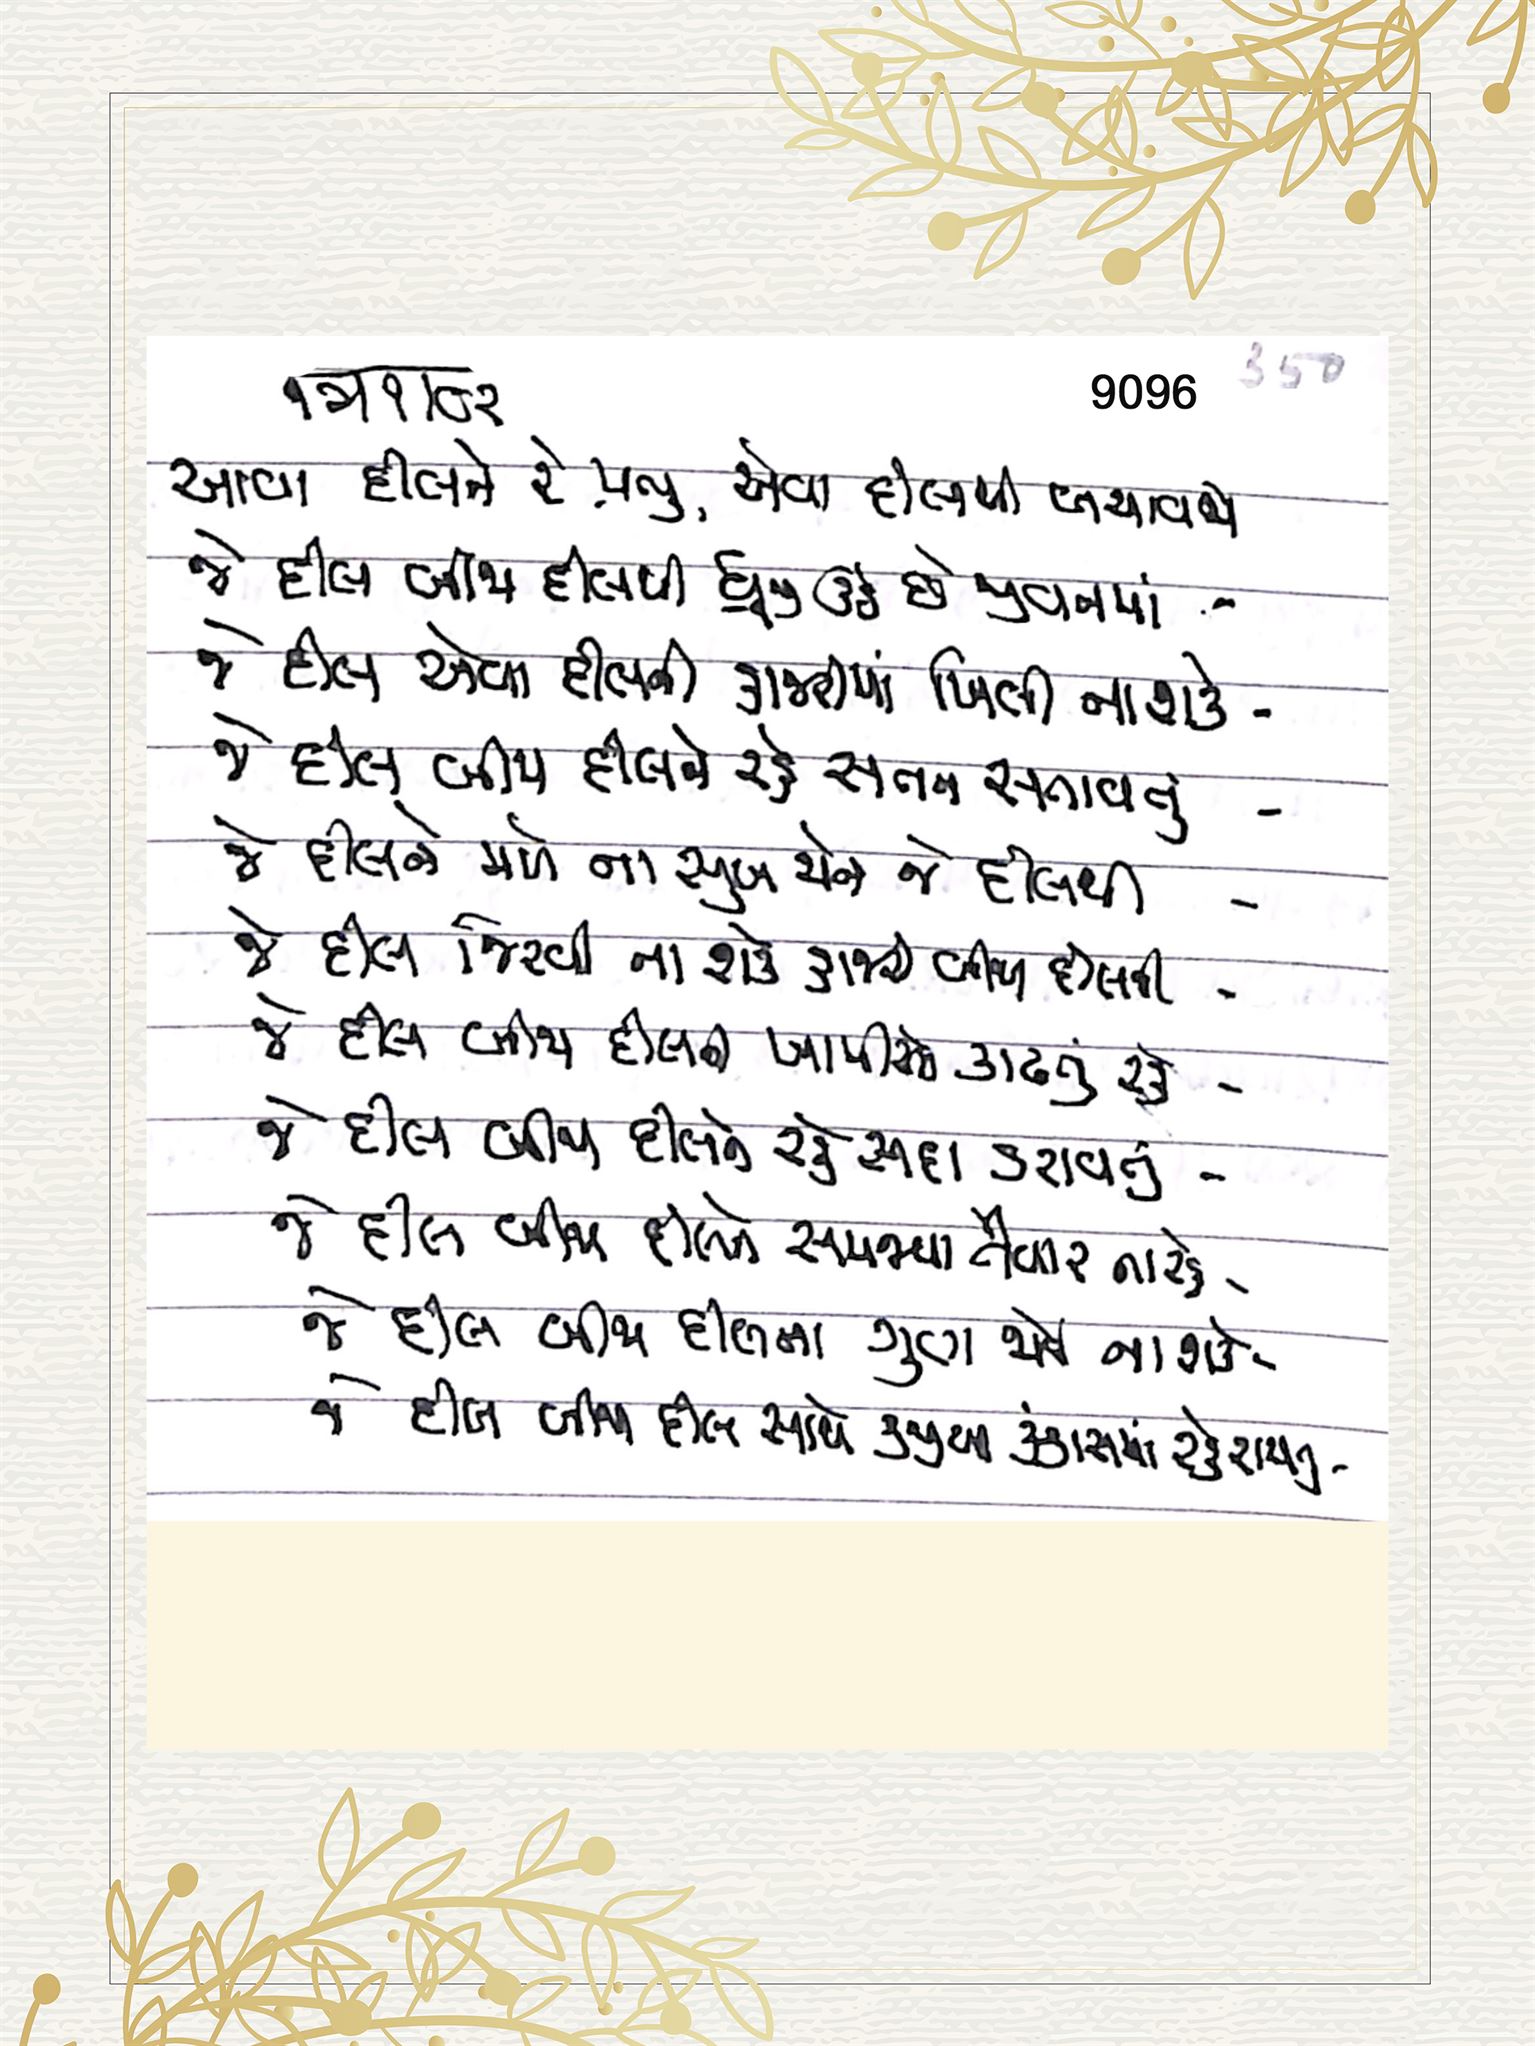 9096
350
આવા દીલને રે પ્રભુ, એવા દીલથી બચાવજો
જે દીલ બીજા દીલથી ધ્રૂજી ઊઠે છે જીવનમાં -
જે દીલ એવા દીલની હાજરીમાં ખિલી ના શકે -
જે દીલ બીજા દીલને રહે સતત સતાવતું -
જે દીલને મળે ના સુખ ચેન જે દીલથી -
જે દીલ જિરવી ના શકે હાજરી બીજા દીલની -
જે દીલ બીજા દીલની ખામીઓ કાઢતું રહે -
જે દીલ બીજા દીલને રહે સદા ડરાવતું -
જે દીલ બીજા દીલને સમજવા તૈયાર ના રહે -
જે દીલ બીજા દીલના ગુણ જોઈ ના શકે -
જે દીલ બીજા દીલ સાથે કજીયા કંકાસમાં રહે રાચતું -